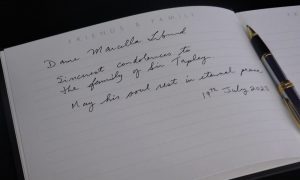 FRIENDS & FAMILY
Dame Marcella
Sincerest condolences to
the family of Sir Tapley.
May his soul rest in eternal peace.
19th July 2023